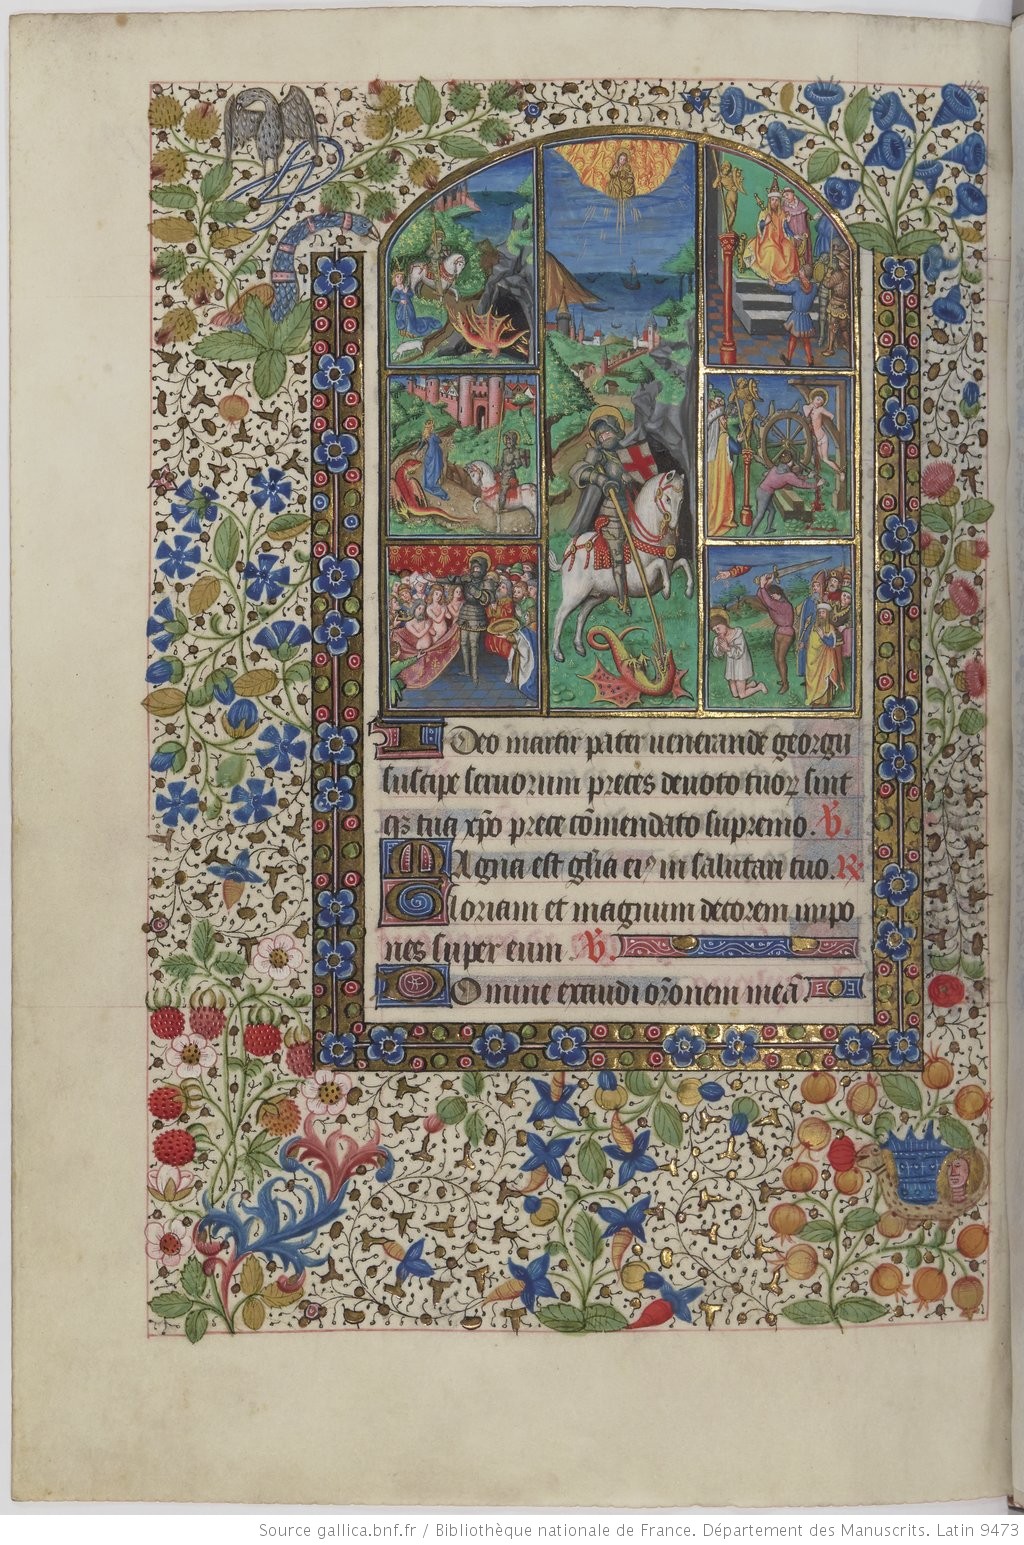 Ideo martir pater venerande georgii
suscipe servorum preces devoto tuoꝝ sint
qꝫ tua xp̄o prece cōmendato supremo. ℣.
Magna est gl̄ia eiꝰ in salutari tuo. ℟.
Gloriam et magnum decorem impo
nes super eum ℣.
Domine exaudi or̄onem meā.
Source gallica.bnf.fr / Bibliothèque nationale de France. Département des Manuscrits. Latin 9473